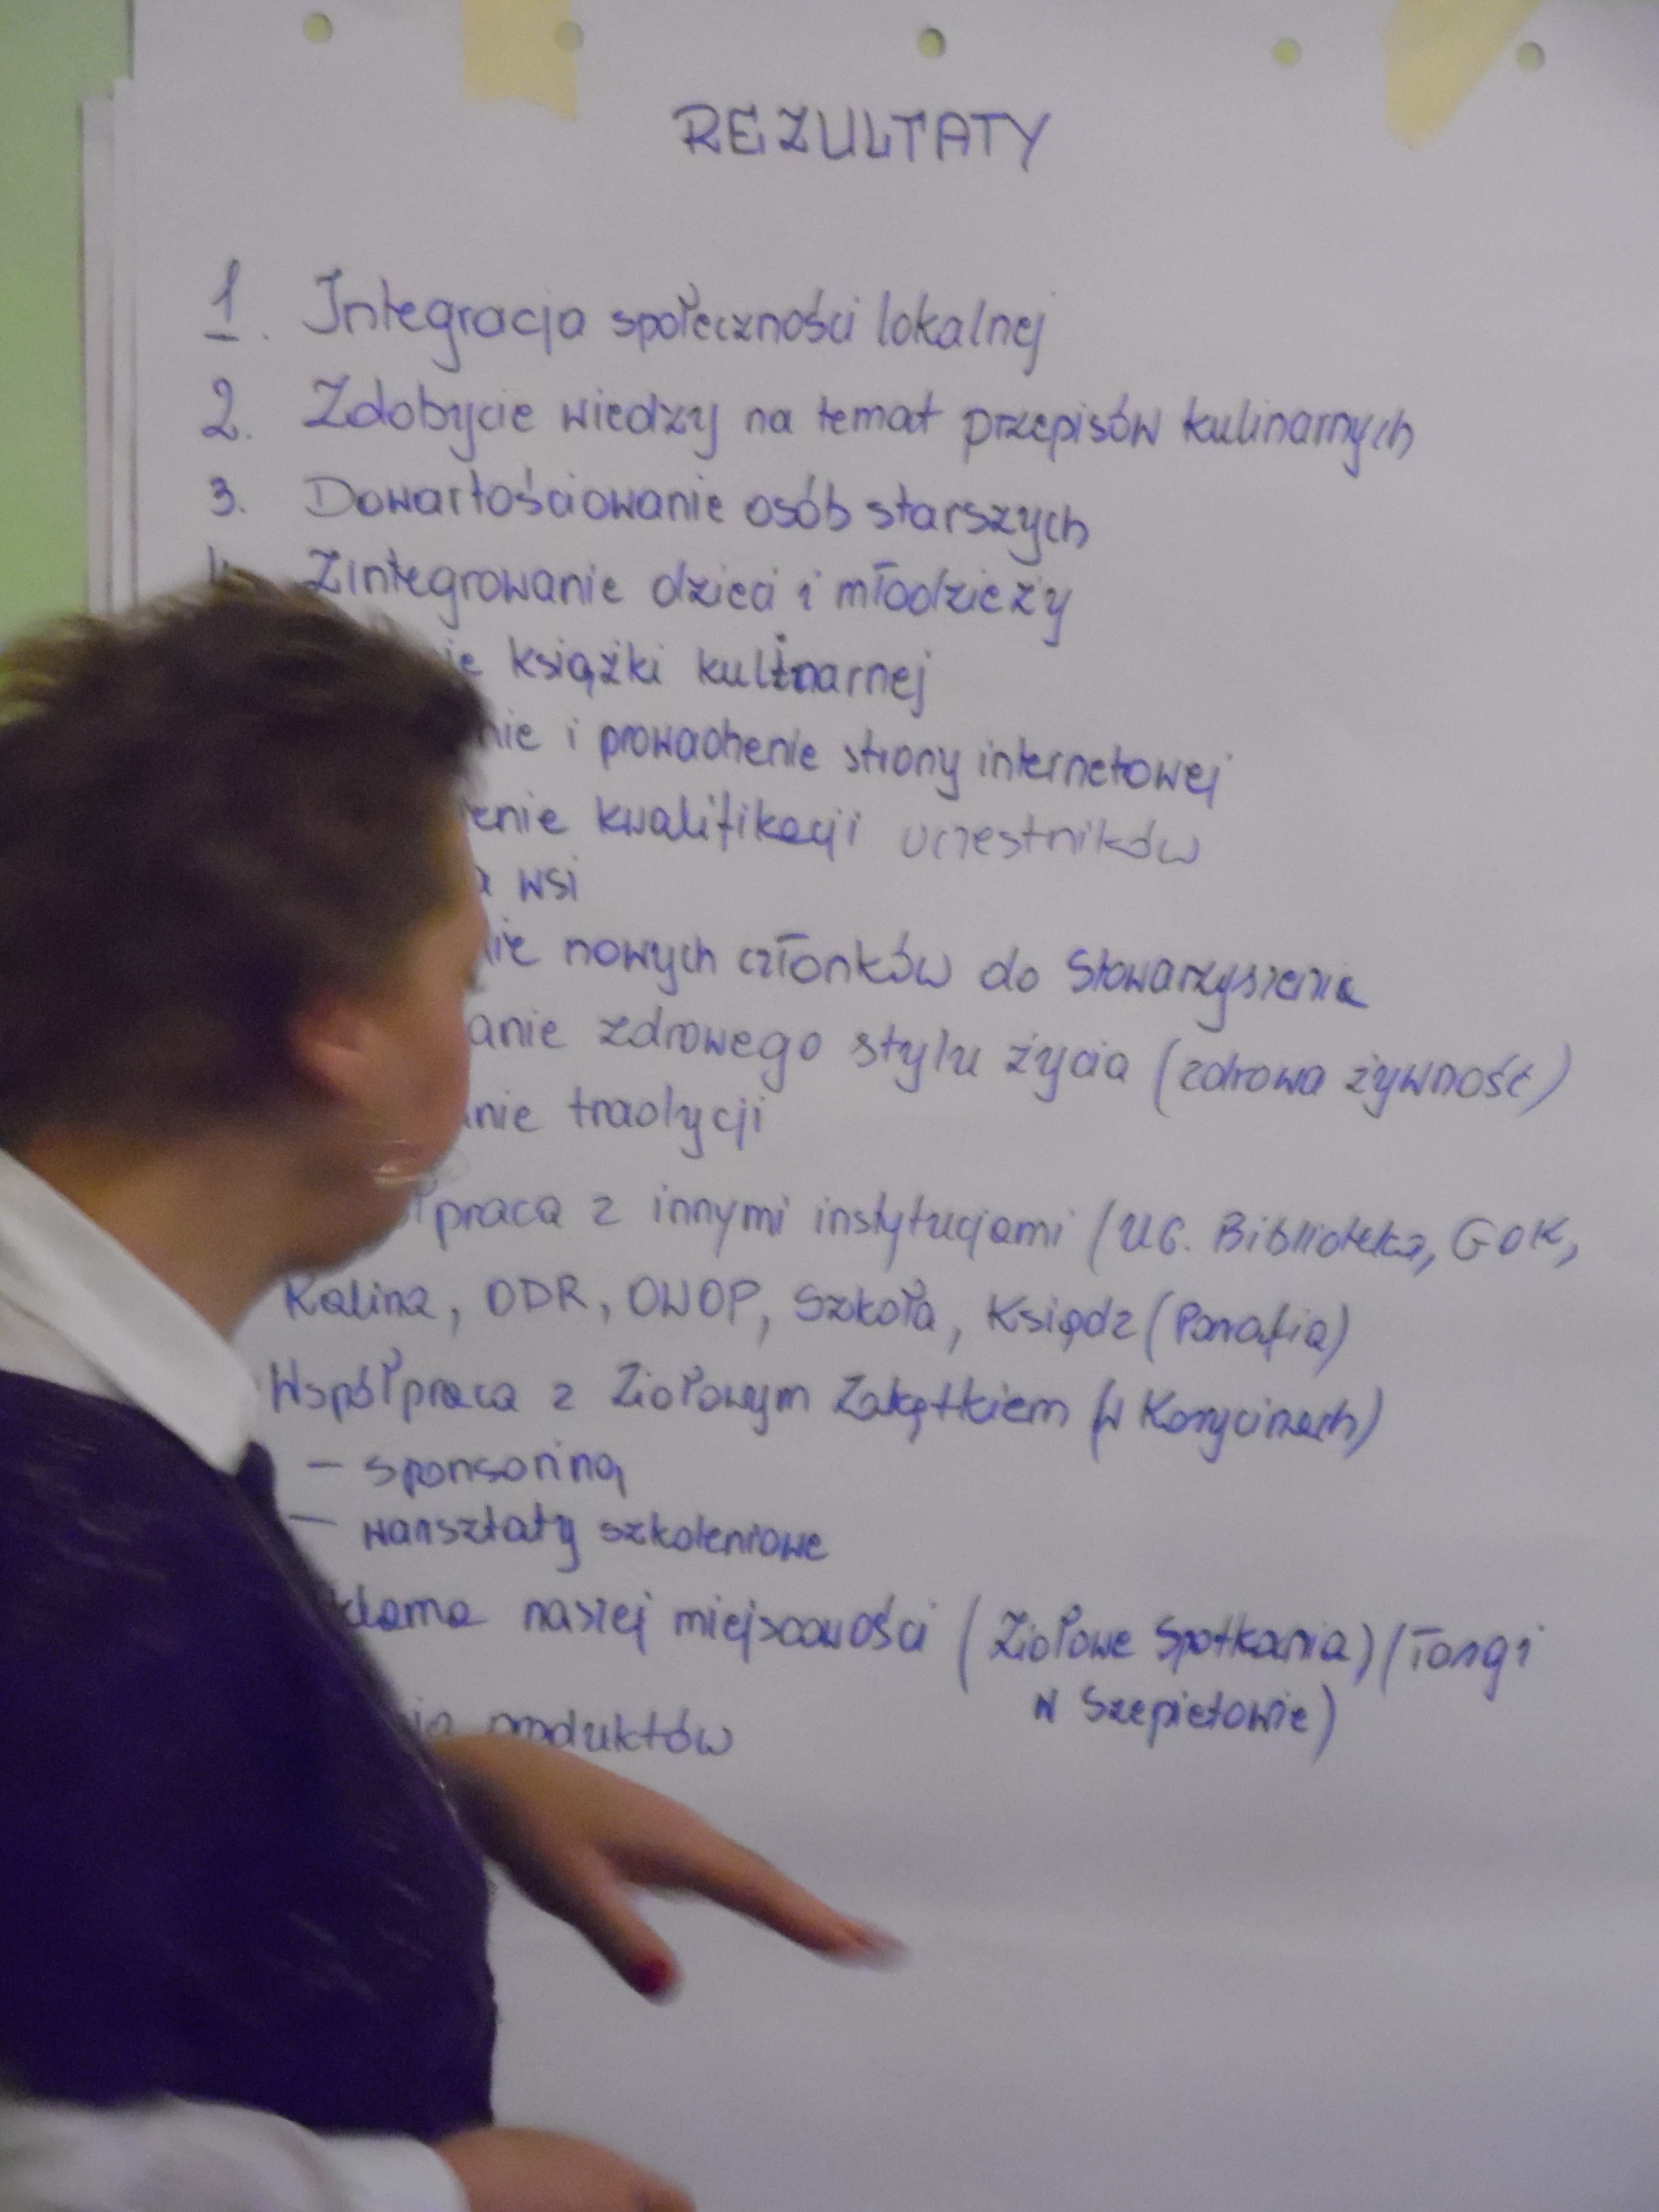 REZULTATY
1. Integracja społeczności lokalnej
2. Zdobycie wiedzy na temat przepisów kulinarnych
3. Dowartościowanie osób starszych
Zintegrowanie dzieci i młodzieży
książki kulinarnej
i prowadzenie strony internetowej
kwalifikacji uczestników
wsi
nowych członków do Stowarzyszenia
zdrowego stylu życia (zdrowa żywność)
tradycji
z innymi instytucjami (UG. Biblioteka, GOK,
Kalina, ODR, OWOP, Szkoła, Ksiądz (Parafia)
Współpraca z Ziołowym Zakątkiem (w Korycinach)
- sponsoring
- warsztaty szkoleniowe
naszej miejscowości (Ziołowe Spotkania) (Targi
w Szepietowie)
produktów